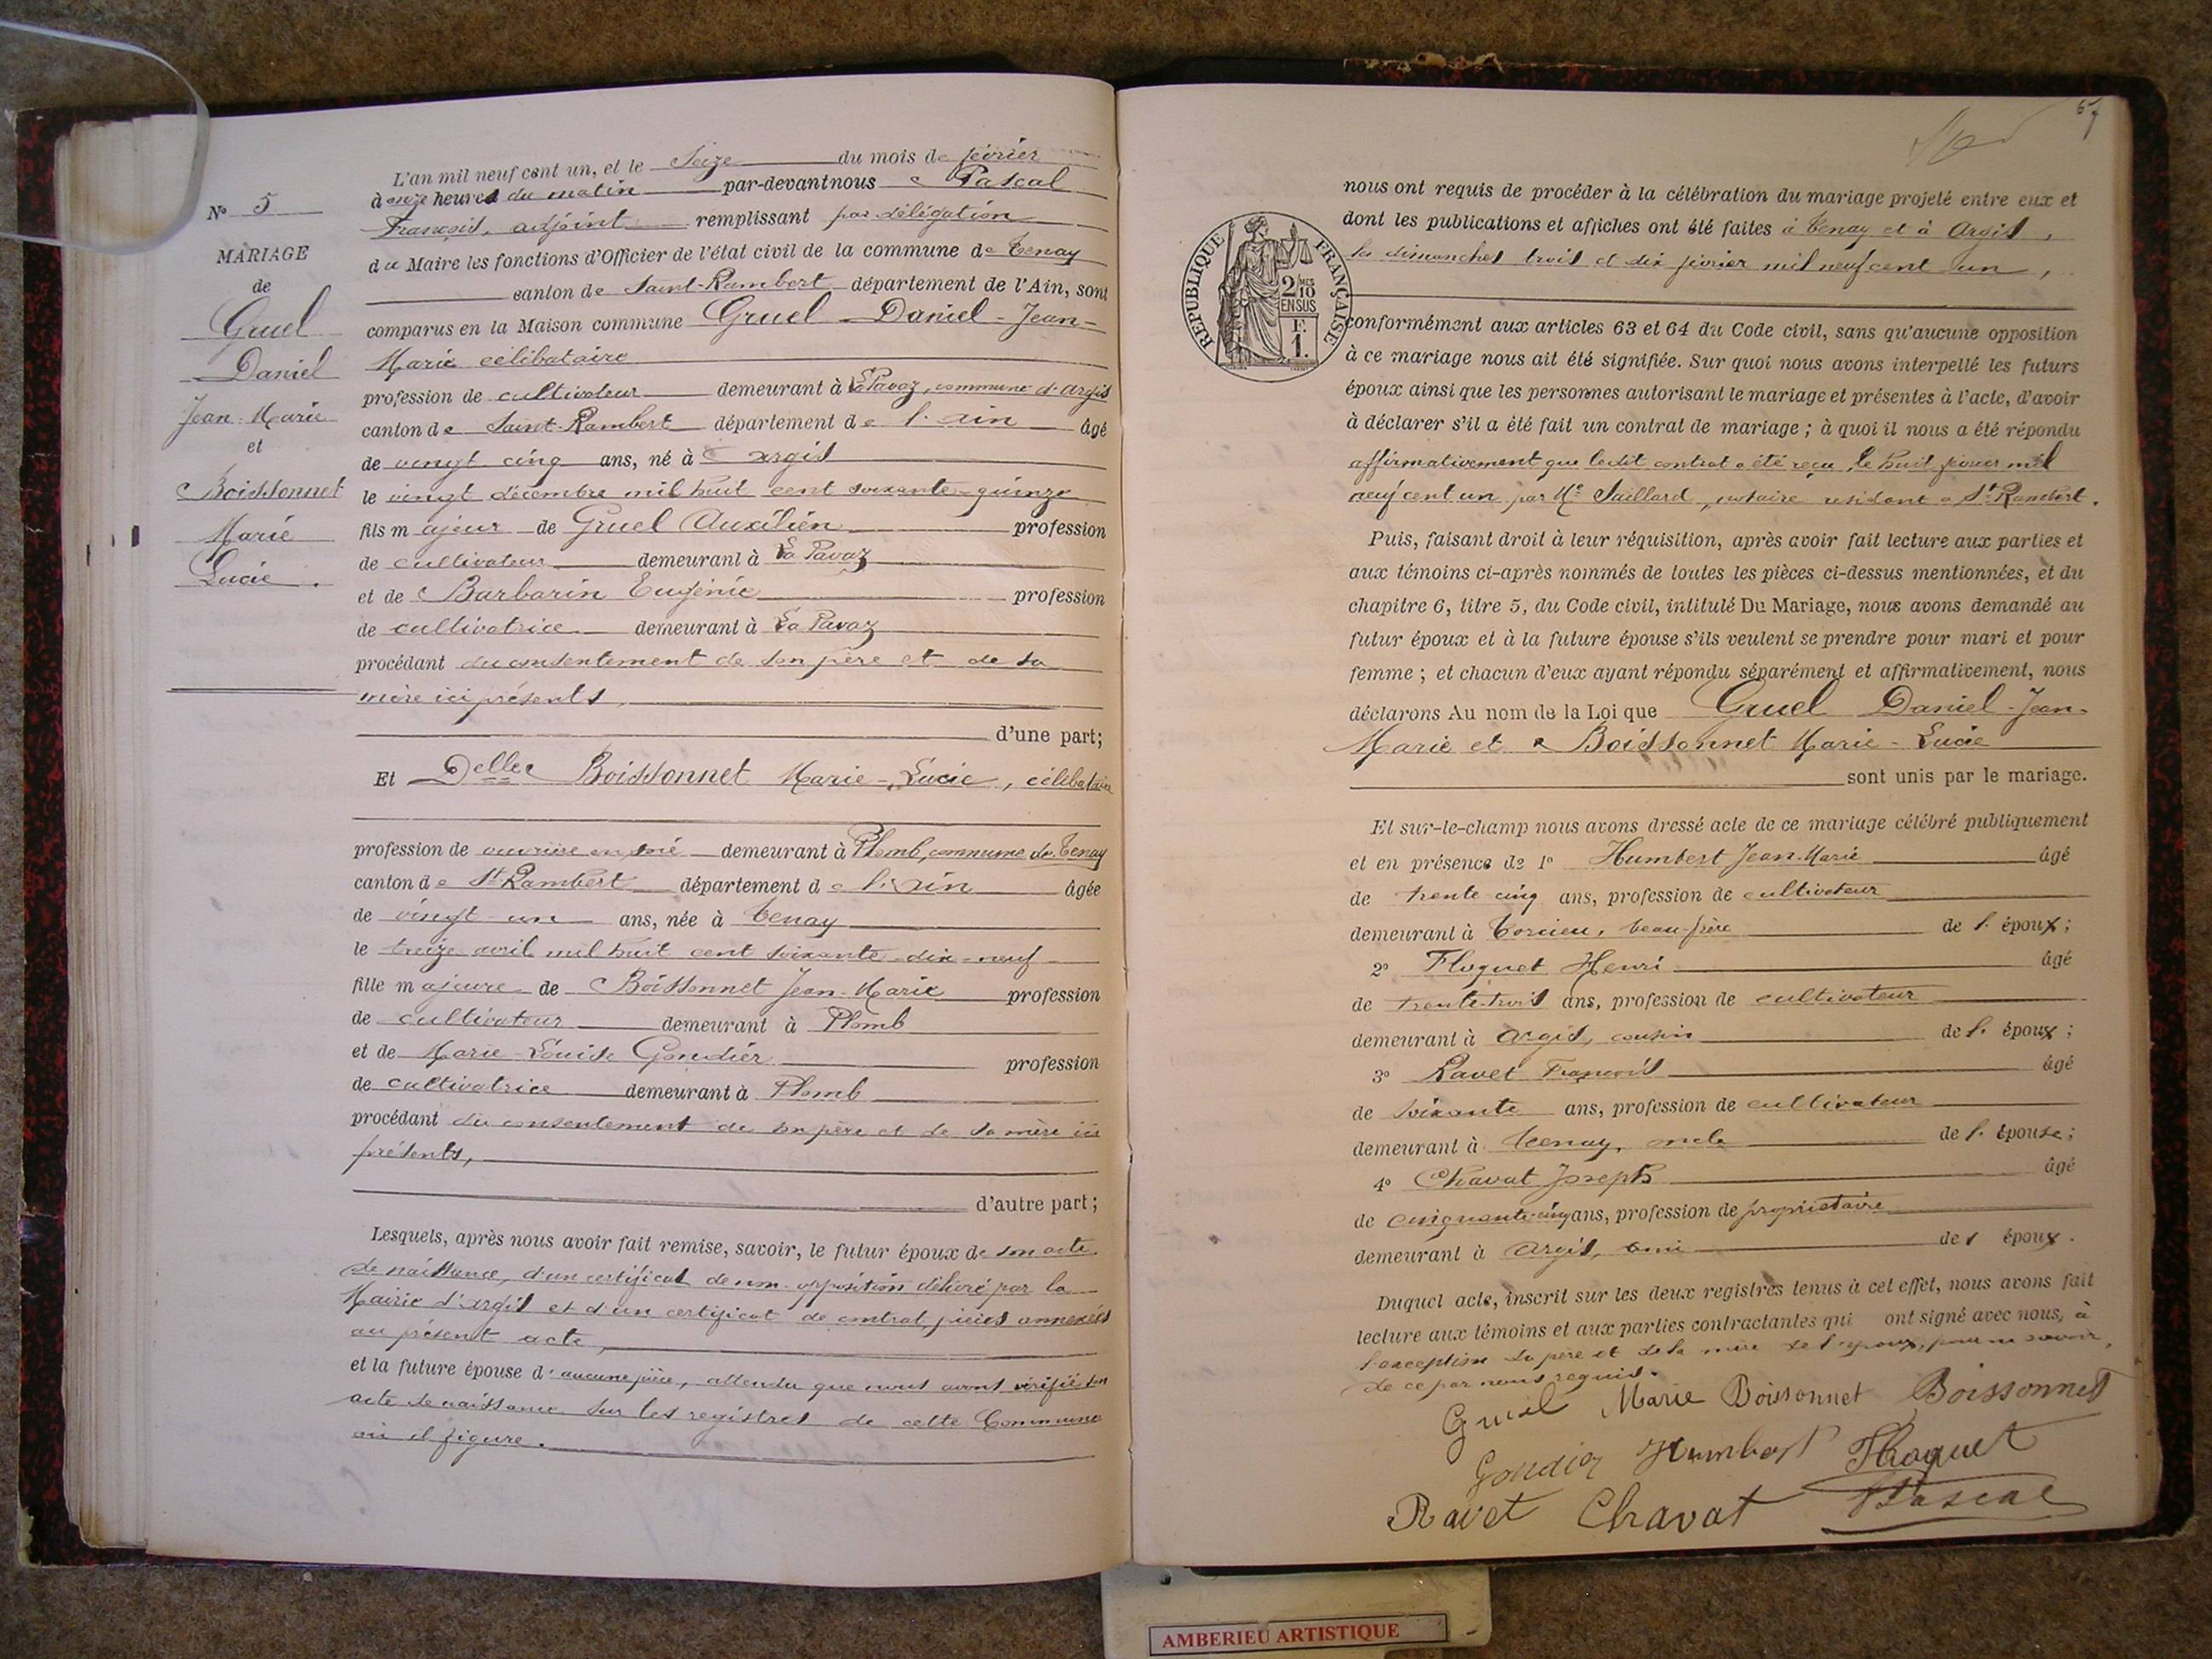 L'an mil neuf cent un, et le Seize du mois de février
à onze heures du matin par-devant nous Pascal
François, adjoint remplissant par délégation
du Maire les fonctions d'Officier de l'état civil de la commune de Tenay
canton de Saint-Rambert département de l'Ain, sont
comparus en la Maison commune Gruel Daniel-Jean-
Marie célibataire
profession de cultivateur demeurant à La Pavaz, commune d'Argis
canton de Saint-Rambert département de l'Ain âgé
de vingt cinq ans, né à Argis
le vingt décembre mil huit cent soixante-quinze
fils majeur de Gruel Auxilien profession
de cultivateur demeurant à La Pavaz
et de Barbarin Eugénie profession
de cultivatrice demeurant à La Pavaz
procédant du consentement de son père et de sa
mère ici présents,
d'une part;
Et Delle Boissonnet Marie-Lucie, célibataire
profession de ouvrière en soie demeurant à Plomb, commune de Tenay
canton de St-Rambert département de l'Ain âgée
de vingt un ans, née à Tenay
le treize avril mil huit cent soixante-dix-neuf
fille majeure de Boissonnet Jean-Marie profession
de cultivateur demeurant à Plomb
et de Marie-Louise Gondier profession
de cultivatrice demeurant à Plomb
procédant du consentement de son père et de sa mère ici
présents,
d'autre part;
Lesquels, après nous avoir fait remise, savoir, le futur époux de son acte
de naissance, d'un certificat de non-opposition délivré par la
Mairie d'Argis et d'un certificat de contrat, pièces annexées
au présent acte,
et la future épouse d'aucune pièce, attendu que nous avons vérifié son
acte de naissance sur les registres de cette Commune
où il figure.
N° 5
MARIAGE
de
Gruel
Daniel
Jean-Marie
et
Boissonnet
Marie
Lucie.
67
RÉPUBLIQUE FRANÇAISE
2 MES
10
EN SUS
F.
1.
nous ont requis de procéder à la célébration du mariage projeté entre eux et
dont les publications et affiches ont été faites à Tenay et à Argis,
les dimanches trois et dix février mil neuf cent un,
conformément aux articles 63 et 64 du Code civil, sans qu'aucune opposition
à ce mariage nous ait été signifiée. Sur quoi nous avons interpellé les futurs
époux ainsi que les personnes autorisant le mariage et présentes à l'acte, d'avoir
à déclarer s'il a été fait un contrat de mariage; à quoi il nous a été répondu
affirmativement que ledit contrat a été reçu le huit février mil
neuf cent un par Me Saillard, notaire résidant à St Rambert.
Puis, faisant droit à leur réquisition, après avoir fait lecture aux parties et
aux témoins ci-après nommés de toutes les pièces ci-dessus mentionnées, et du
chapitre 6, titre 5, du Code civil, intitulé Du Mariage, nous avons demandé au
futur époux et à la future épouse s'ils veulent se prendre pour mari et pour
femme; et chacun d'eux ayant répondu séparément et affirmativement, nous
déclarons Au nom de la Loi que Gruel Daniel-Jean-
Marie et Boissonnet Marie-Lucie
sont unis par le mariage.
Et sur-le-champ nous avons dressé acte de ce mariage célébré publiquement
et en présence de 1° Humbert Jean-Marie âgé
de trente cinq ans, profession de cultivateur
demeurant à Torcieu, beau-frère de l'époux;
2° Floquet Henri âgé
de trente-trois ans, profession de cultivateur
demeurant à Argis, cousin de l'époux;
3° Ravet François âgé
de soixante ans, profession de cultivateur
demeurant à Tenay, oncle de l'épouse;
4° Chavat Joseph âgé
de cinquante-cinq ans, profession de propriétaire
demeurant à Argis, ami des époux.
Duquel acte, inscrit sur les deux registres tenus à cet effet, nous avons fait
lecture aux témoins et aux parties contractantes qui ont signé avec nous, à
l'exception du père et de la mère de l'époux, pour ne savoir,
de ce par nous requis.
Gruel Marie Boissonnet Boissonnet
Gondier Humbert Floquet
Ravet Chavat Pascal
AMBERIEU ARTISTIQUE